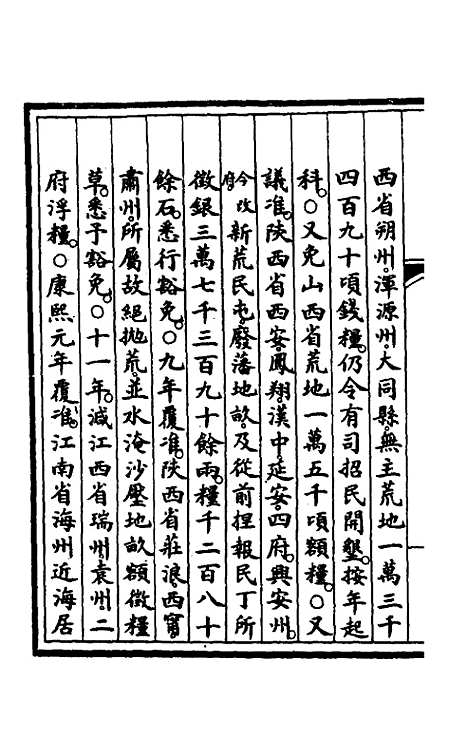 西省朔州。渾源州。大同縣。無主荒地一萬三千
四百九十頃錢糧。仍令有司招民開墾。按年起
科。○又免山西省荒地一萬五千頃額糧。○又
議准。陝西省西安。鳳翔。漢中。延安。四府。興安州。
今改府新荒民屯。廢藩地畝。及從前捏報民丁所
徵銀三萬七千三百九十餘兩。糧千二百八十
餘石。悉行豁免。○九年覆准。陝西省莊浪。西寧。
肅州。所屬故絕拋荒。並水淹沙壓地畝額徵糧
草。悉予豁免。○十一年。減江西省瑞州。袁州。二
府浮糧。○康熙元年覆准。江南省海州近海居